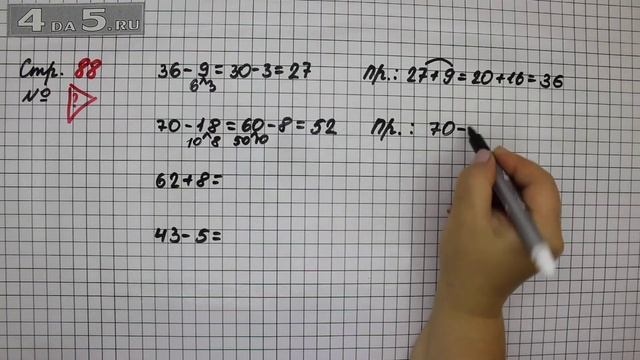 4 DA 5.RU
Стр. 88
№ ?
36-9=30-3=27
6 3
пр.: 27+9=20+16=36
70-18=60-8=52
10 8 50 10
Пр.: 70-
62+8=
43-5=